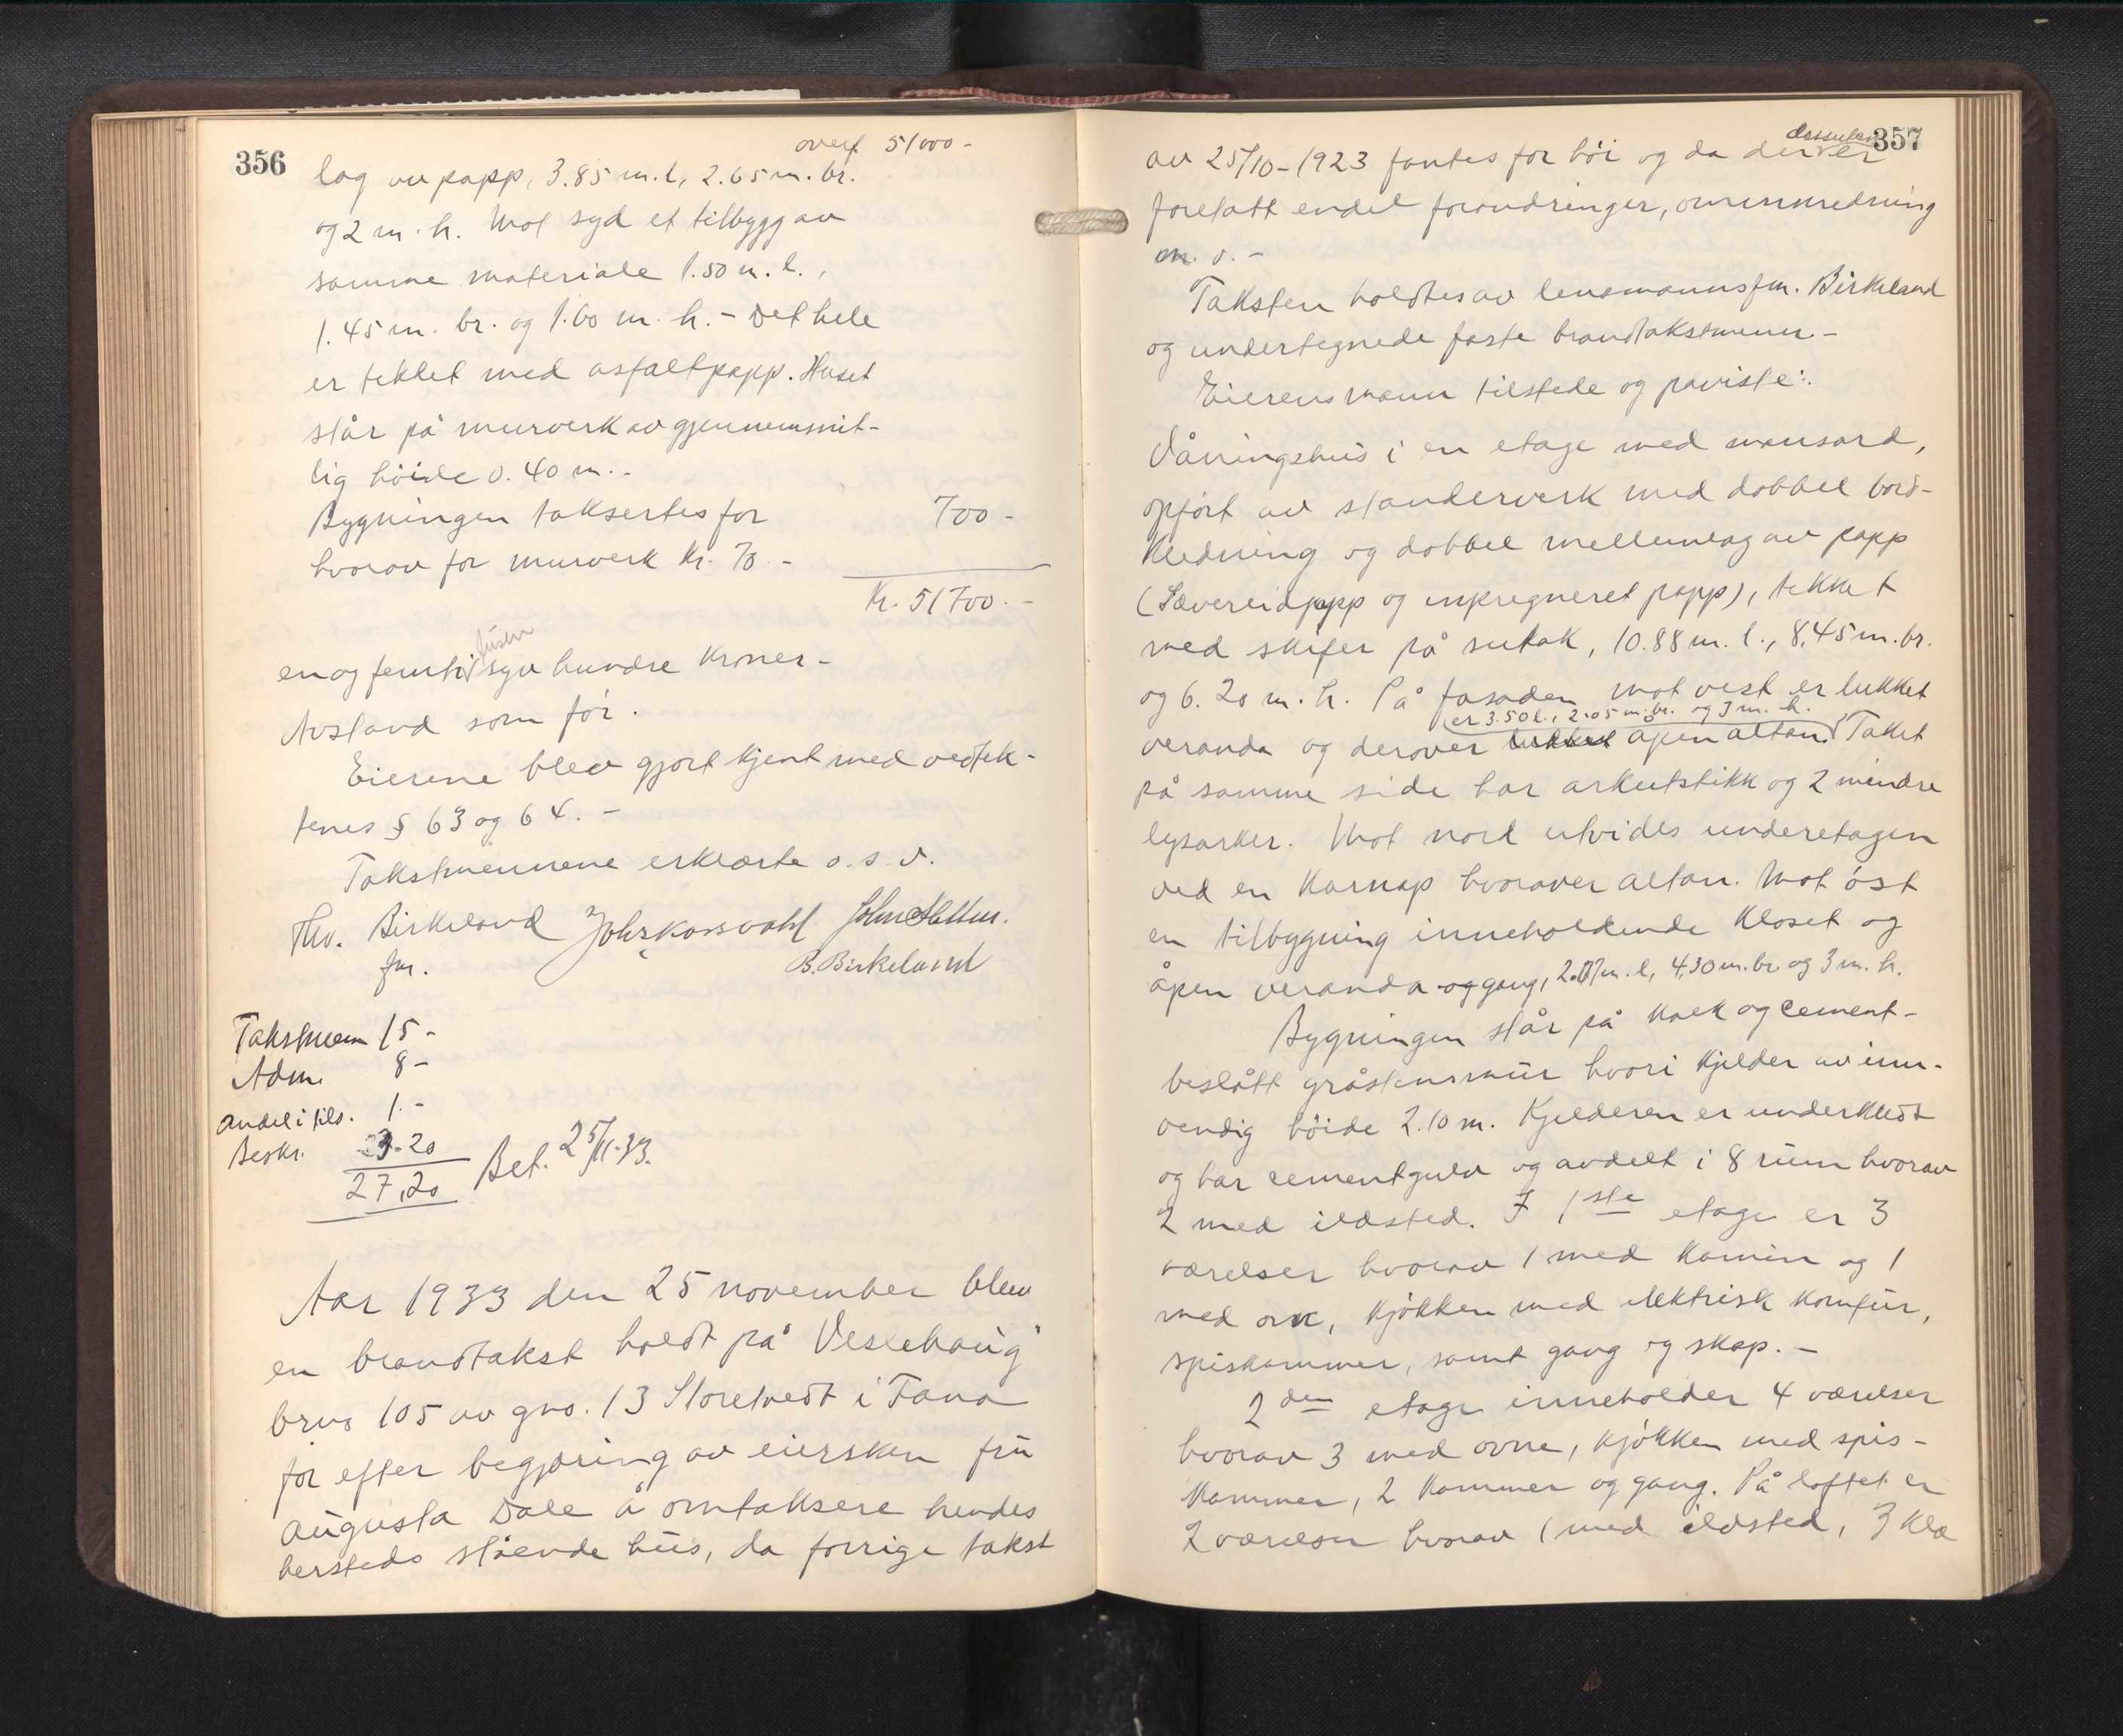 356
overf 51000 -
lag av papp, 3.85 m. l, 2.65 m. br.
og 2 m. h. Mot syd et tilbygg av
samme materiale 1.50 m. l.,
1.45 m. br. og 1.60 m. h. - Det hele
er tekket med asfaltpapp. Huset
står på murverk av gjennemsnit-
lig høide 0.40 m. -
Bygningen taksertes for 700 -
hvorav for murverk kr. 70 -
Kr. 51700. -
tusen
en og femti syv hundre kroner -
Avstand som før.
Eierene blev gjort kjent med vedtek-
tenes § 63 og 64. -
Takstmennene erklærte o. s. v.
Thv. Birkeland Johs Korsvold John Sletten.
fm. B. Birkeland
Takstmenn 15 -
Adm. 8 -
Andel i tils. 1. -
Beskr. 3.20
27,20 Bet. 25/11.33.
Aar 1933 den 25 november blev
en brandtakst holdt på "Veslehaug"
brno 105 av gno. 13 Storetvedt i Fana
for efter begjæring av eiersken fru
Augusta Dale å omtaksere hendes
hersteds stående hus, da forrige takst
357
dessuten
av 25/10-1923 fantes for høi og da der er
foretatt endel forandringer, ominnredning
m. v. -
Taksten holdtes av lensmannsfm. Birkeland
og undertegnede faste brandtakstmenn -
Eierens mann tilstede og påviste:
Våningshus i en etage med mansard,
opført av standerverk med dobbel bord-
klædning og dobbel mellemlag av papp
(Sævereidpapp og inpregneret papp), tekket
med skifer på sutak, 10.88 m. l., 8,45 m. br.
og 6.20 m. h. På fasaden mot vest er lukket
er 3.50 l., 2.05 m. br. og 3 m. h.
veranda og derover lukket åpen altan. Taket
på samme side har arkeutstikk og 2 mindre
lysarker. Mot nord utvides underetagen
ved en karnap hvorover altan. Mot øst
en tilbygning inneholdende kloset og
åpen veranda og gang, 2.17 m. l, 4.30 m. br. og 3 m. h.
Bygningen står på kalk og cement-
beslått gråstensmur hvori kjelder av inn-
vendig høide 2.10 m. Kjelderen er underkledt
og har cementgulv og avdelt i 8 rum hvorav
2 med ildsted. I 1ste etage er 3
værelser hvorav 1 med kamin og 1
med ovn, kjøkken med elektrisk komfur,
spiskammer, samt gang og skap. -
2den etage inneholder 4 værelser
hvorav 3 med ovne, kjøkken med spis-
kammer, 2 kammer og gang. På loftet er
2 værelser hvorav 1 med ildsted, 3 klæ